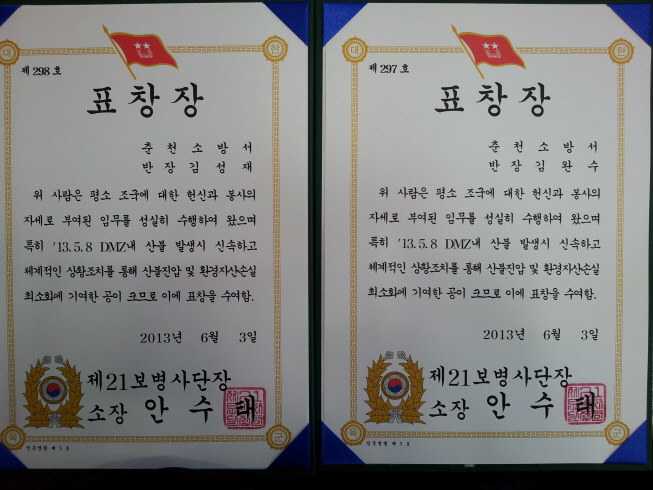 제 298 호
표창장
춘천소방서
반장김성재
위 사람은 평소 조국에 대한 헌신과 봉사의
자세로 부여된 임무를 성실히 수행하여 왔으며
특히 '13.5.8 DMZ내 산불 발생시 신속하고
체계적인 상황조치를 통해 산불진압 및 환경자산손실
최소화에 기여한 공이 크므로 이에 표창을 수여함.
2013년 6월 3일
제21보병사단장
소장 안수태
대
육
군
제 297 호
표창장
춘천소방서
반장김완수
위 사람은 평소 조국에 대한 헌신과 봉사의
자세로 부여된 임무를 성실히 수행하여 왔으며
특히 '13.5.8 DMZ내 산불 발생시 신속하고
체계적인 상황조치를 통해 산불진압 및 환경자산손실
최소화에 기여한 공이 크므로 이에 표창을 수여함.
2013년 6월 3일
제21보병사단장
소장 안수태
대
한
군